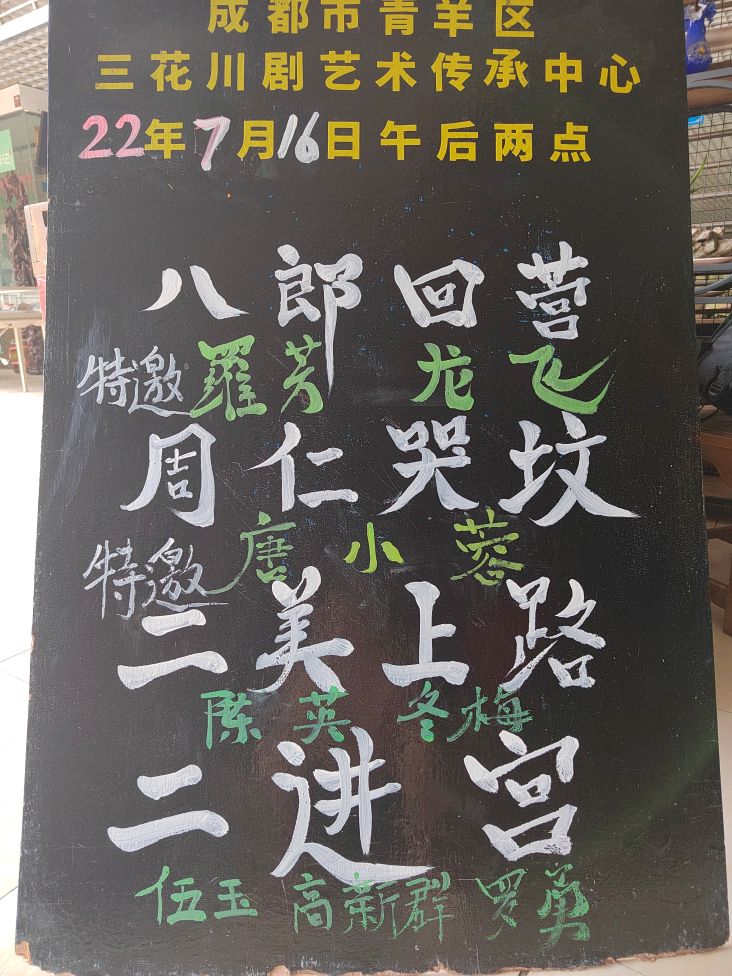 成都市青羊区
三花川剧艺术传承中心
22年7月16日午后两点
八郎回营
特邀羅芳 龙飞
周仁哭坟
特邀唐小蓉
二美上路
陈英 冬梅
二进宫
伍玉 高新群 罗勇